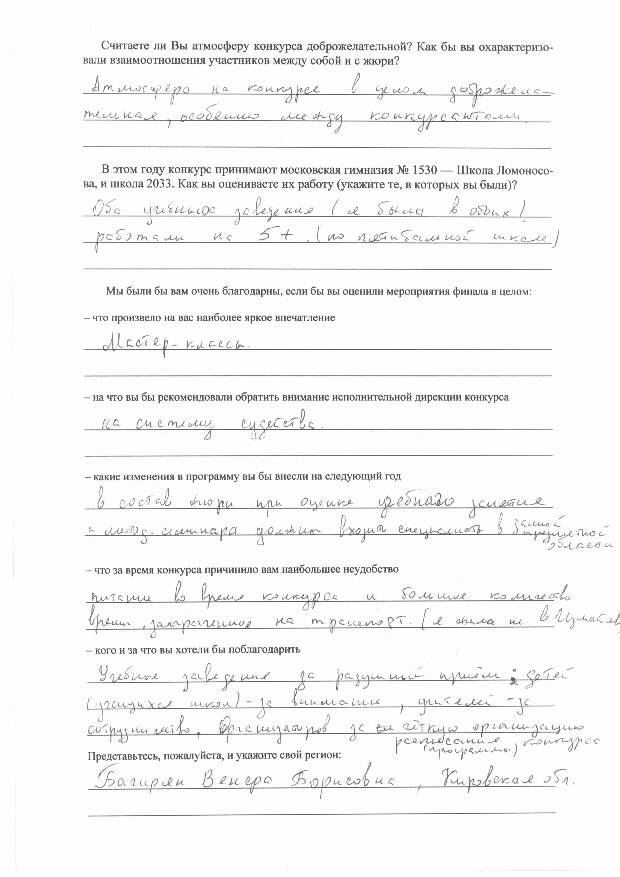 Считаете ли Вы атмосферу конкурса доброжелательной? Как бы вы охарактеризо-
вали взаимоотношения участников между собой и с жюри?
Атмосфера на конкурсе в целом доброжела-
тельная, особенно между конкурсантами.
В этом году конкурс принимают московская гимназия № 1530 — Школа Ломоносо-
ва, и школа 2033. Как вы оцениваете их работу (укажите те, в которых вы были)?
Оба учебные заведения (я была в обоих)
работали на 5+. (по пятибалльной шкале)
Мы были бы вам очень благодарны, если бы вы оценили мероприятия финала в целом:
– что произвело на вас наиболее яркое впечатление
Мастер-классы.
– на что вы бы рекомендовали обратить внимание исполнительной дирекции конкурса
на систему судейства.
– какие изменения в программу вы бы внесли на следующий год
в состав жюри при оценке учебного занятия
и метод. семинара должны входить специалисты в данной
предметной
области
– что за время конкурса причинило вам наибольшее неудобство
питание во время конкурса и большое количество
времени, затраченное на транспорт. (я жила не в Измайлово
– кого и за что вы хотели бы поблагодарить
Учебные заведения за радушный приём: детей
(учащихся школ) - за внимание, учителей - за
сотрудничество, Организаторов за чёткую организацию
расписания конкурса
(программы)
Представьтесь, пожалуйста, и укажите свой регион:
Багирян Венера Борисовна, Кировская обл.